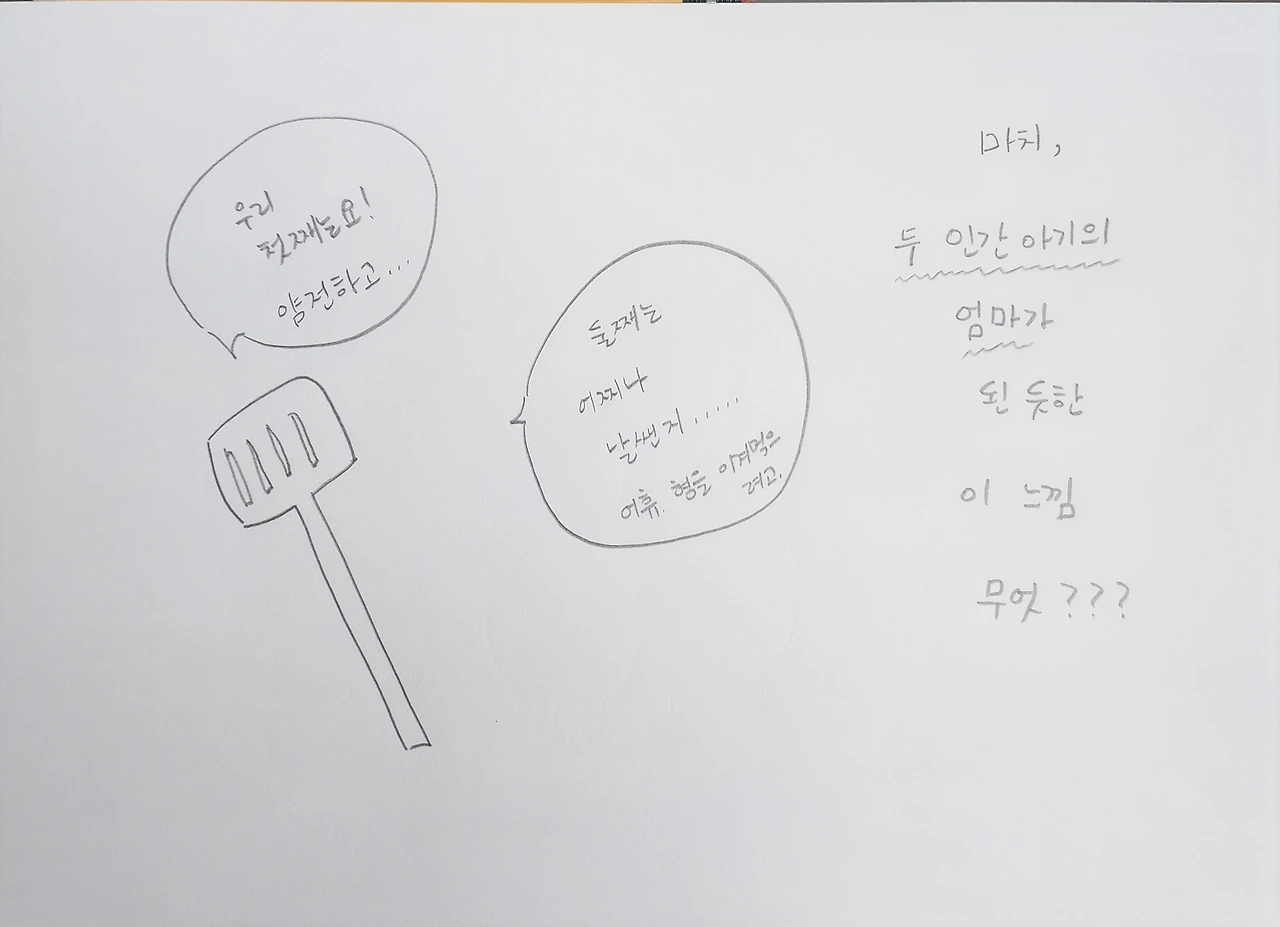 우리
첫째는요!
얌전하고...
둘째는
어찌나
날쌘지.....
어휴. 형을 이겨먹으
려고.
마치,
두 인간 아기의
엄마가
된 듯한
이 느낌
무엇???